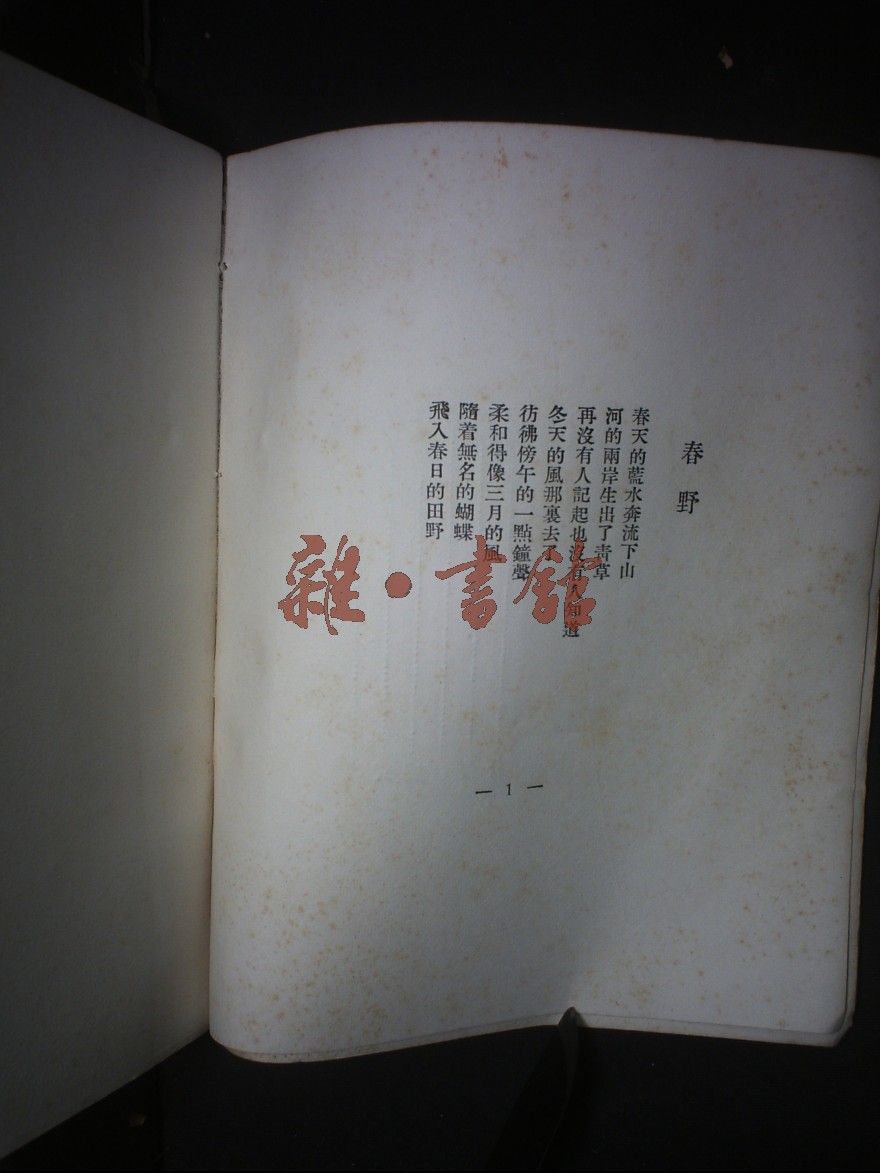 春野
春天的藍水奔流下山
河的兩岸生出了靑草
再沒有人記起也沒有人知道
冬天的風那裏去了
彷彿傍午的一點鐘聲
柔和得像三月的風
隨着無名的蝴蝶
飛入春日的田野
— 1 —
雜·書館